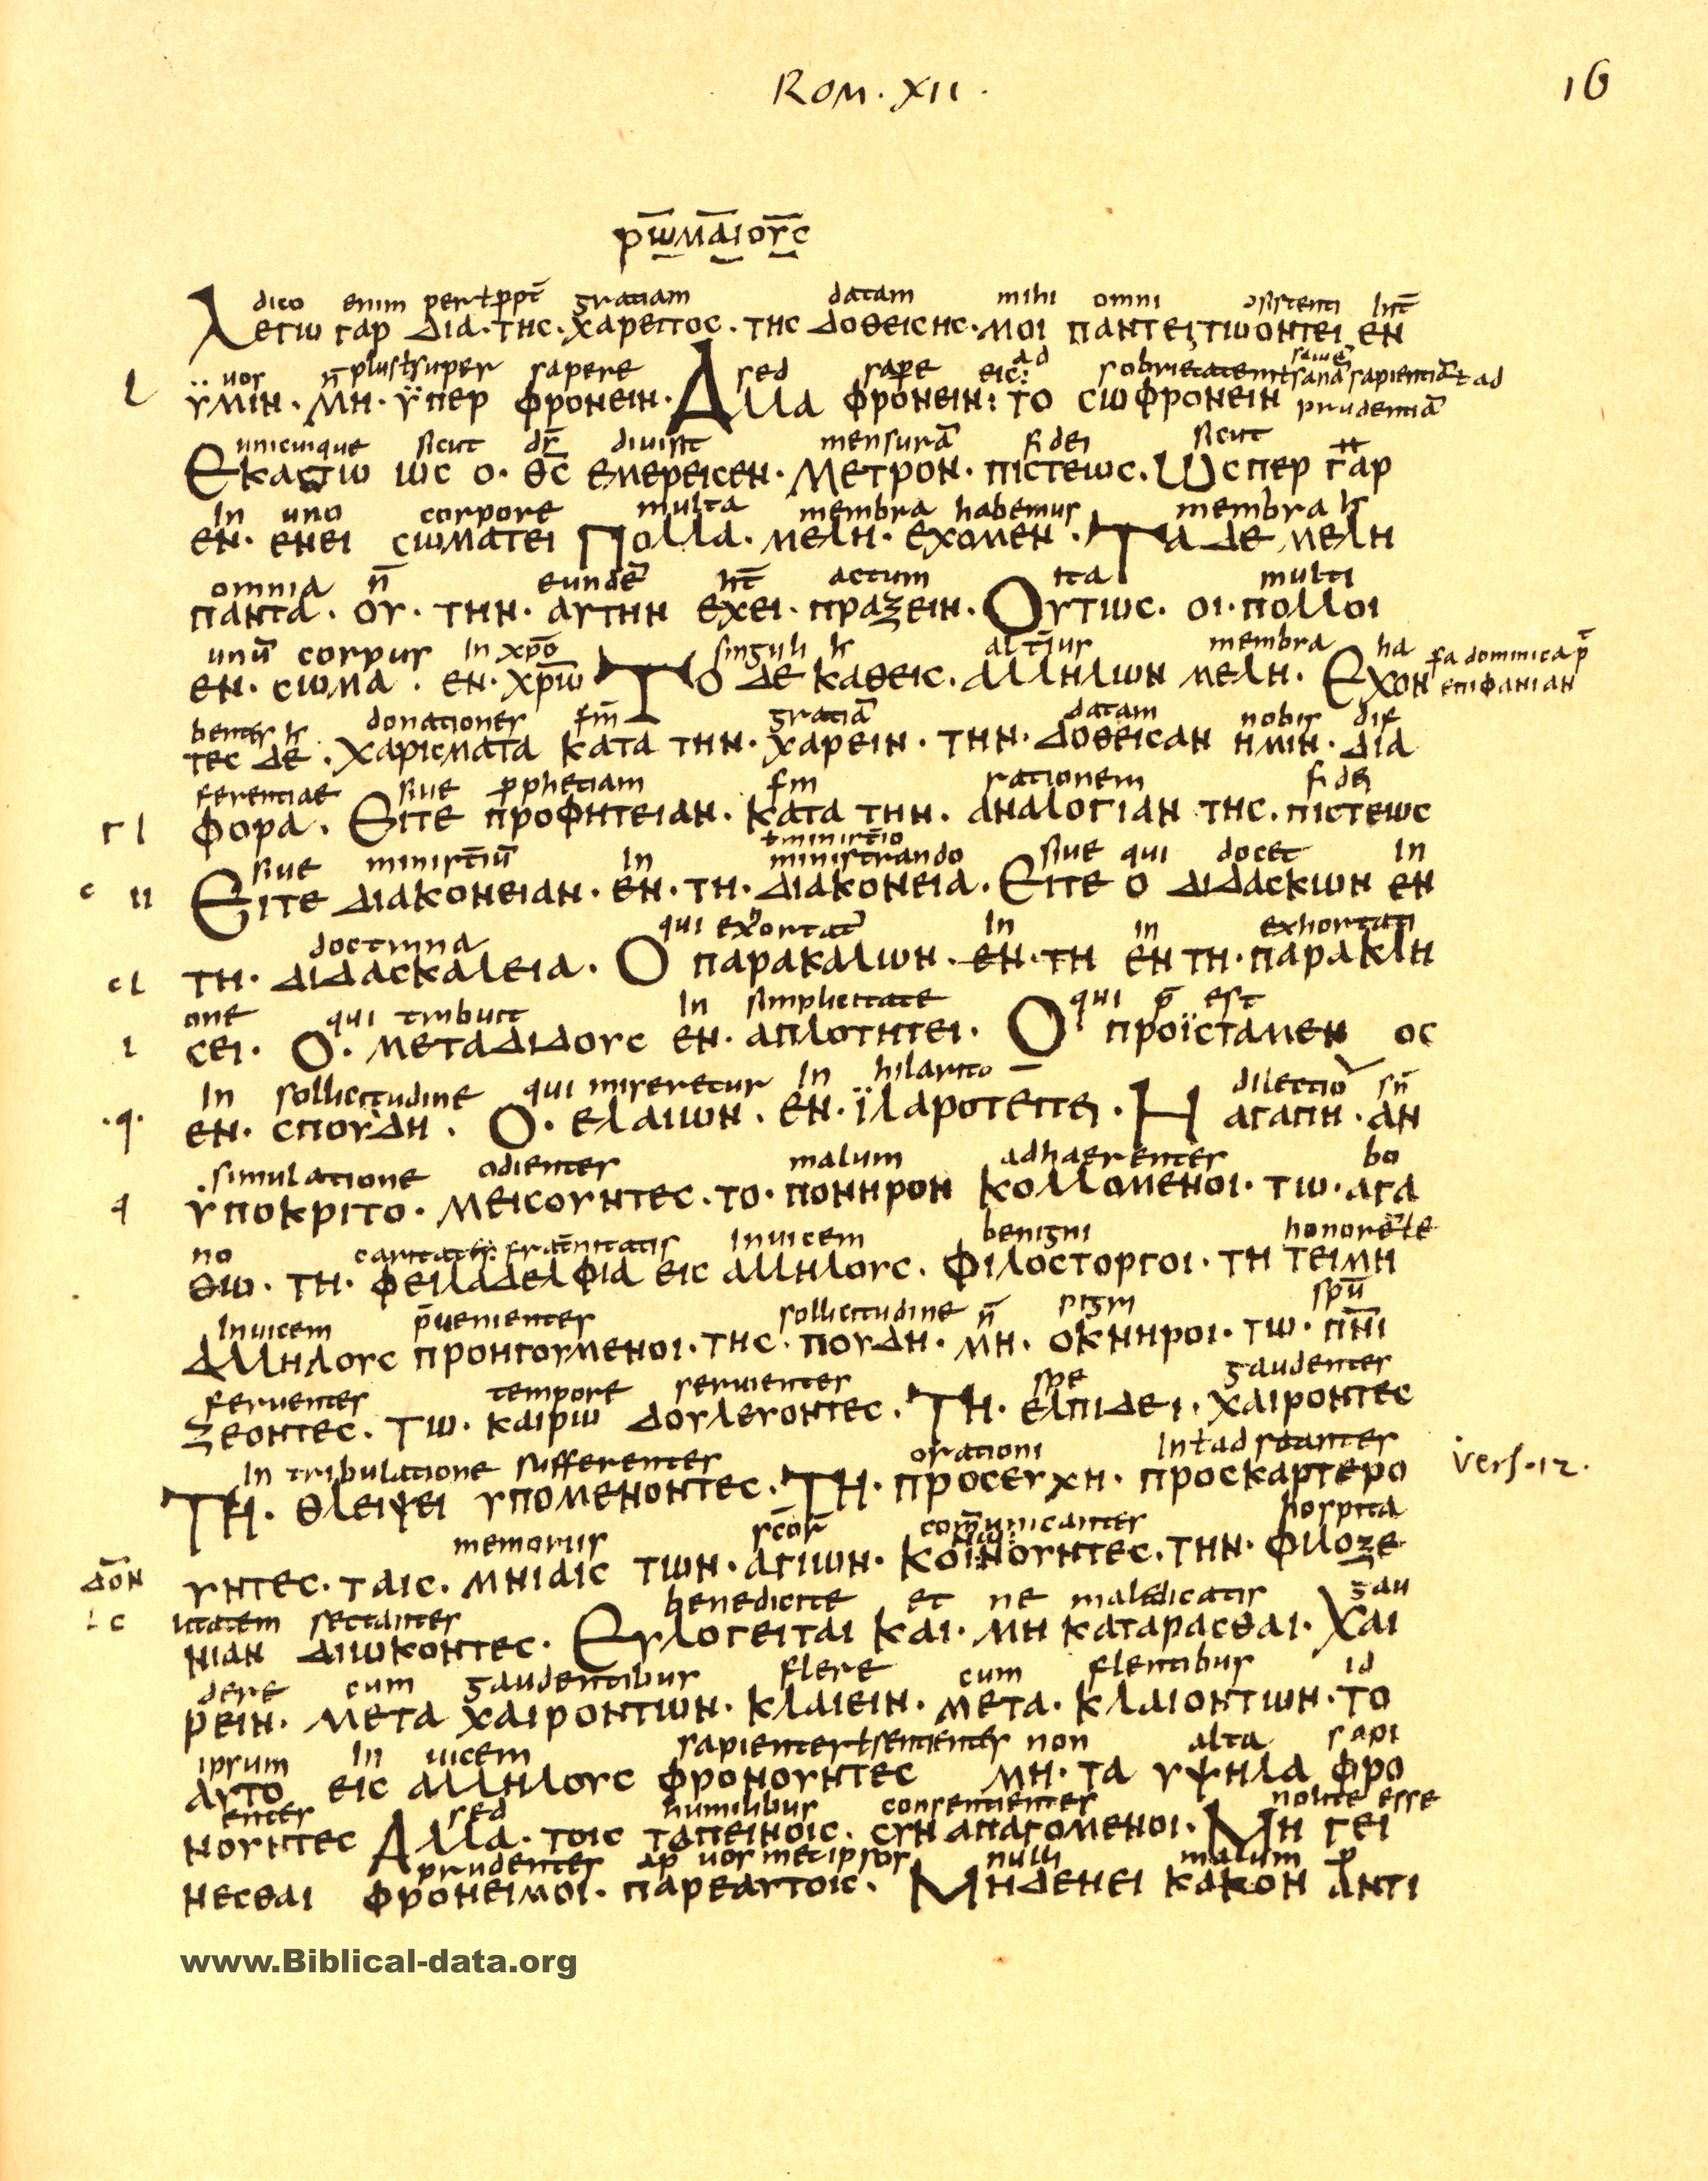 Rom. XII.
16
ρωμαιους
dico enim gratiam datam mihi omni
λεγω γαρ δια · της · χαρειτος · της δοθεισης · μοι παντει τω οντει εν
uos plus super sapere sed sapere ad
υμιν · μη · ϋπερ φρονειν · Αλλα φρονειν : το σωφρονειν prudentiā
unicuique sicut ds diuisit mensurā fidei sicut
Εκαστω ως ο · θς εμερεισεν · μετρον · πιστεως · Ωσπερ γαρ
In uno corpore multa membra habemus membra
εν · ενει σωματει Πολλα · μελη · εχομεν · Τα δε μελη
omnia n̄ eundē actum ita multi
παντα · ου · την · αυτην εχει · πραξειν · Ουτως · οι · πολλοι
unū corpus In xpō singuli membra ha
εν · σωμα · εν · χρω Το δε καθεις · αλληλων μελη · Εχον επιφανιαν
donationes gratiā datam nobis dif
τες δε · χαρισματα κατα την · χαρειν · την · δοθεισαν ημιν · δια
ferentiae siue pphetiam rationem
φορα · Ειτε προφητειαν · κατα την · αναλογιαν της · πιστεως
siue In ministrando siue qui docet In
Ειτε διακονειαν · εν · τη · διακονεια · Ειτε ο διδασκων εν
doctrina qui In in
τη · διδασκαλεια · Ο παρακαλων · εν · τη εν τη · παρακλη
one qui tribuit In simplicitate qui p̄ est
σει · Ο · μεταδιδους εν · απλοτητει · Ο προϊσταμεν ος
In sollicitudine qui miseretur In dilectio
εν · σπουδη · Ο · ελαιων · εν · Η αγαπη · αν
simulatione odientes malum adhaerentes bo
υποκριτο · μεισουντες · το · πονηρον κολλομενοι · τω · αγα
no Inuicem benigni
θω · τη · φειλαδελφια εις αλληλους · φιλοστοργοι · τη τειμη
Inuicem p̄uenientes sollicitudine n̄ spū
αλληλους προηγουμενοι · της · πουδη · μη · οκνηροι · τω · πνι
feruentes tempore seruientes spe gaudentes
ζεοντες · τω · καιρω δουλευοντες · Τη · ελπιδει · χαιροντες
In tribulatione sufferentes orationi
Τη · θλειψει υπομενοντες · Τη · προσευχη · προσκαρτερο
vers. 12.
memoriis hospita
υντες · ταις · μνιαις των · αγιων · κοινουντες · την · φιλοξε
litatem sectantes benedicite et ne maledicatis gau
νιαν διωκοντες · Ευλογειται και · μη καταρασθαι · Χαι
dere cum gaudentibus flere cum flentibus id
ρειν · μετα χαιροντων · κλαιειν · μετα · κλαιοντων · το
ipsum In uicem non alta sapi
αυτο εις αλληλους φρονουντες μη · τα υψηλα φρο
entes sed humilibus consentientes nolite esse
νουντες Αλλα · τοις ταπεινοις · συναπαγομενοι · Μη γει
prudentes ap uosmetipsos nulli malum p
νεσθαι φρονειμοι · παρεαυτοις · Μηδενει κακον αντι
www.Biblical-data.org